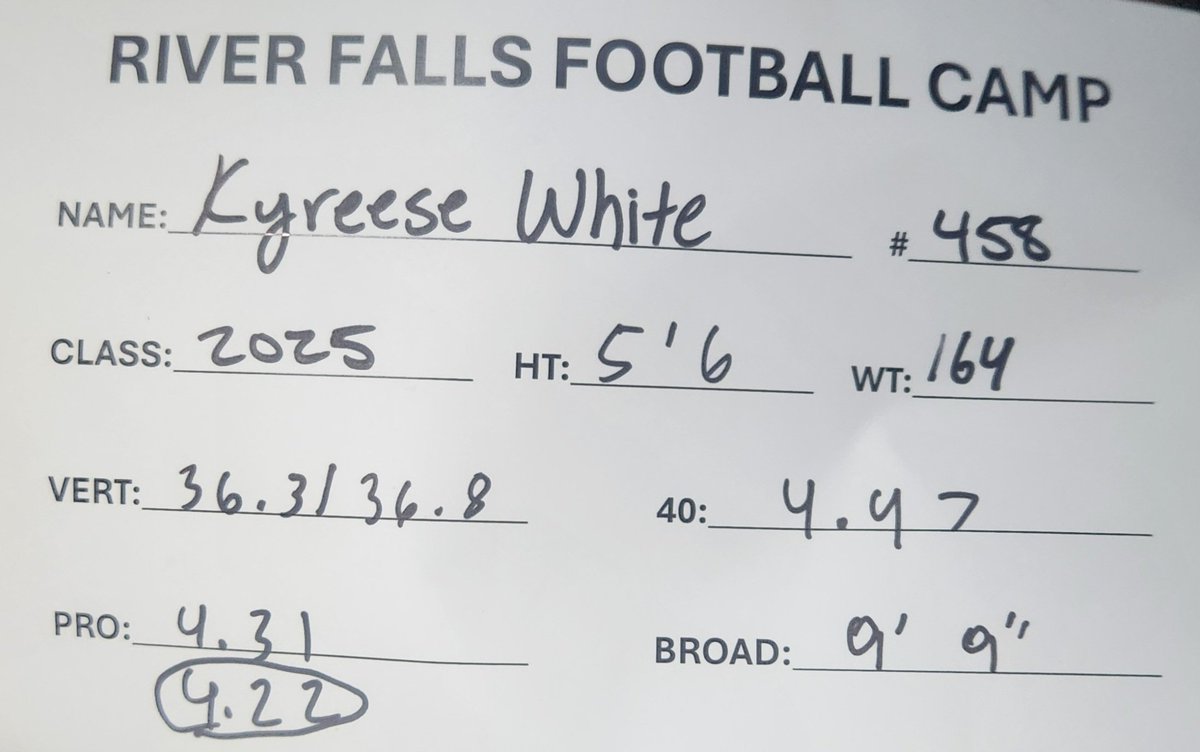 RIVER FALLS FOOTBALL CAMP
NAME: Kyreese White # 458
CLASS: 2025 HT: 5'6 WT: 164
VERT: 36.3/36.8 40: 4.47
PRO: 4.31 BROAD: 9' 9"
4.22